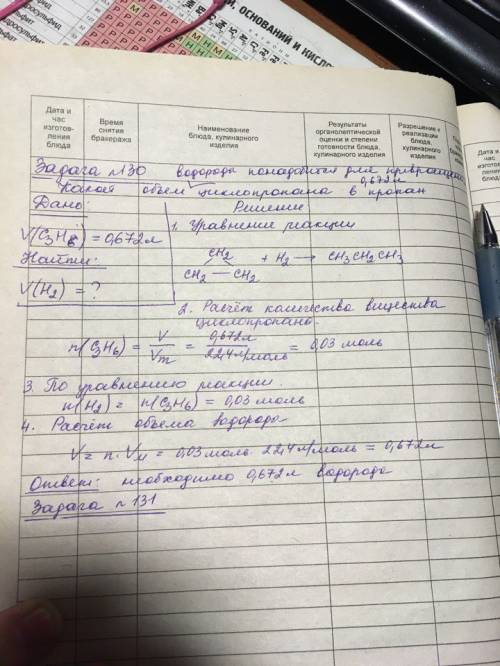 Й, ОСНОВАНИЙ И КИСЛО
Дата и час изготов-ления блюда
Время снятия бракеража
Наименование блюда, кулинарного изделия
Результаты органолептической оценки и степени готовности блюда, кулинарного изделия
Разрешение к реализации блюда, кулинарного изделия
Дата и час изготов-ления блюда
Задача №130 водорода понадобится для превращения
Какой объём циклопропана в пропан
0,672 л
Дано:
Решение
V(C3H6) = 0,672 л
1. Уравнение реакции
Найти:
CH2
CH2—CH2 + H2 → CH3CH2CH3
V(H2) = ?
2. Расчёт количества вещества
циклопропана.
n(C3H6) = V/Vm = 0,672 л/22,4 л/моль = 0,03 моль
3. По уравнению реакции.
n(H2) = n(C3H6) = 0,03 моль
4. Расчёт объёма водорода
V = n · Vm = 0,03 моль · 22,4 л/моль = 0,672 л
Ответ: необходимо 0,672 л водорода
Задача №131